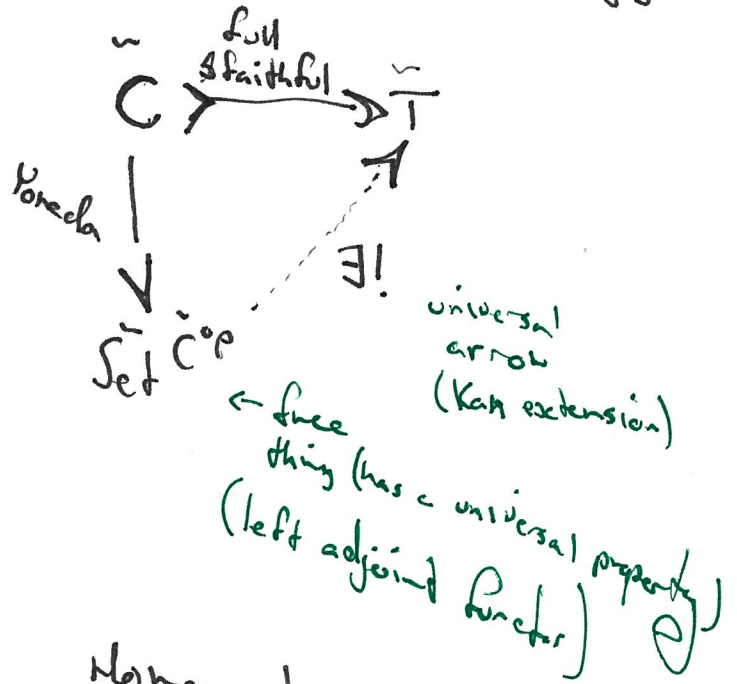 full
& faithful
C
T
Yoneda
∃!
Set C^op
universal
arrow
(Kan extension)
← free
thing (has a universal property)
(left adjoint functor)